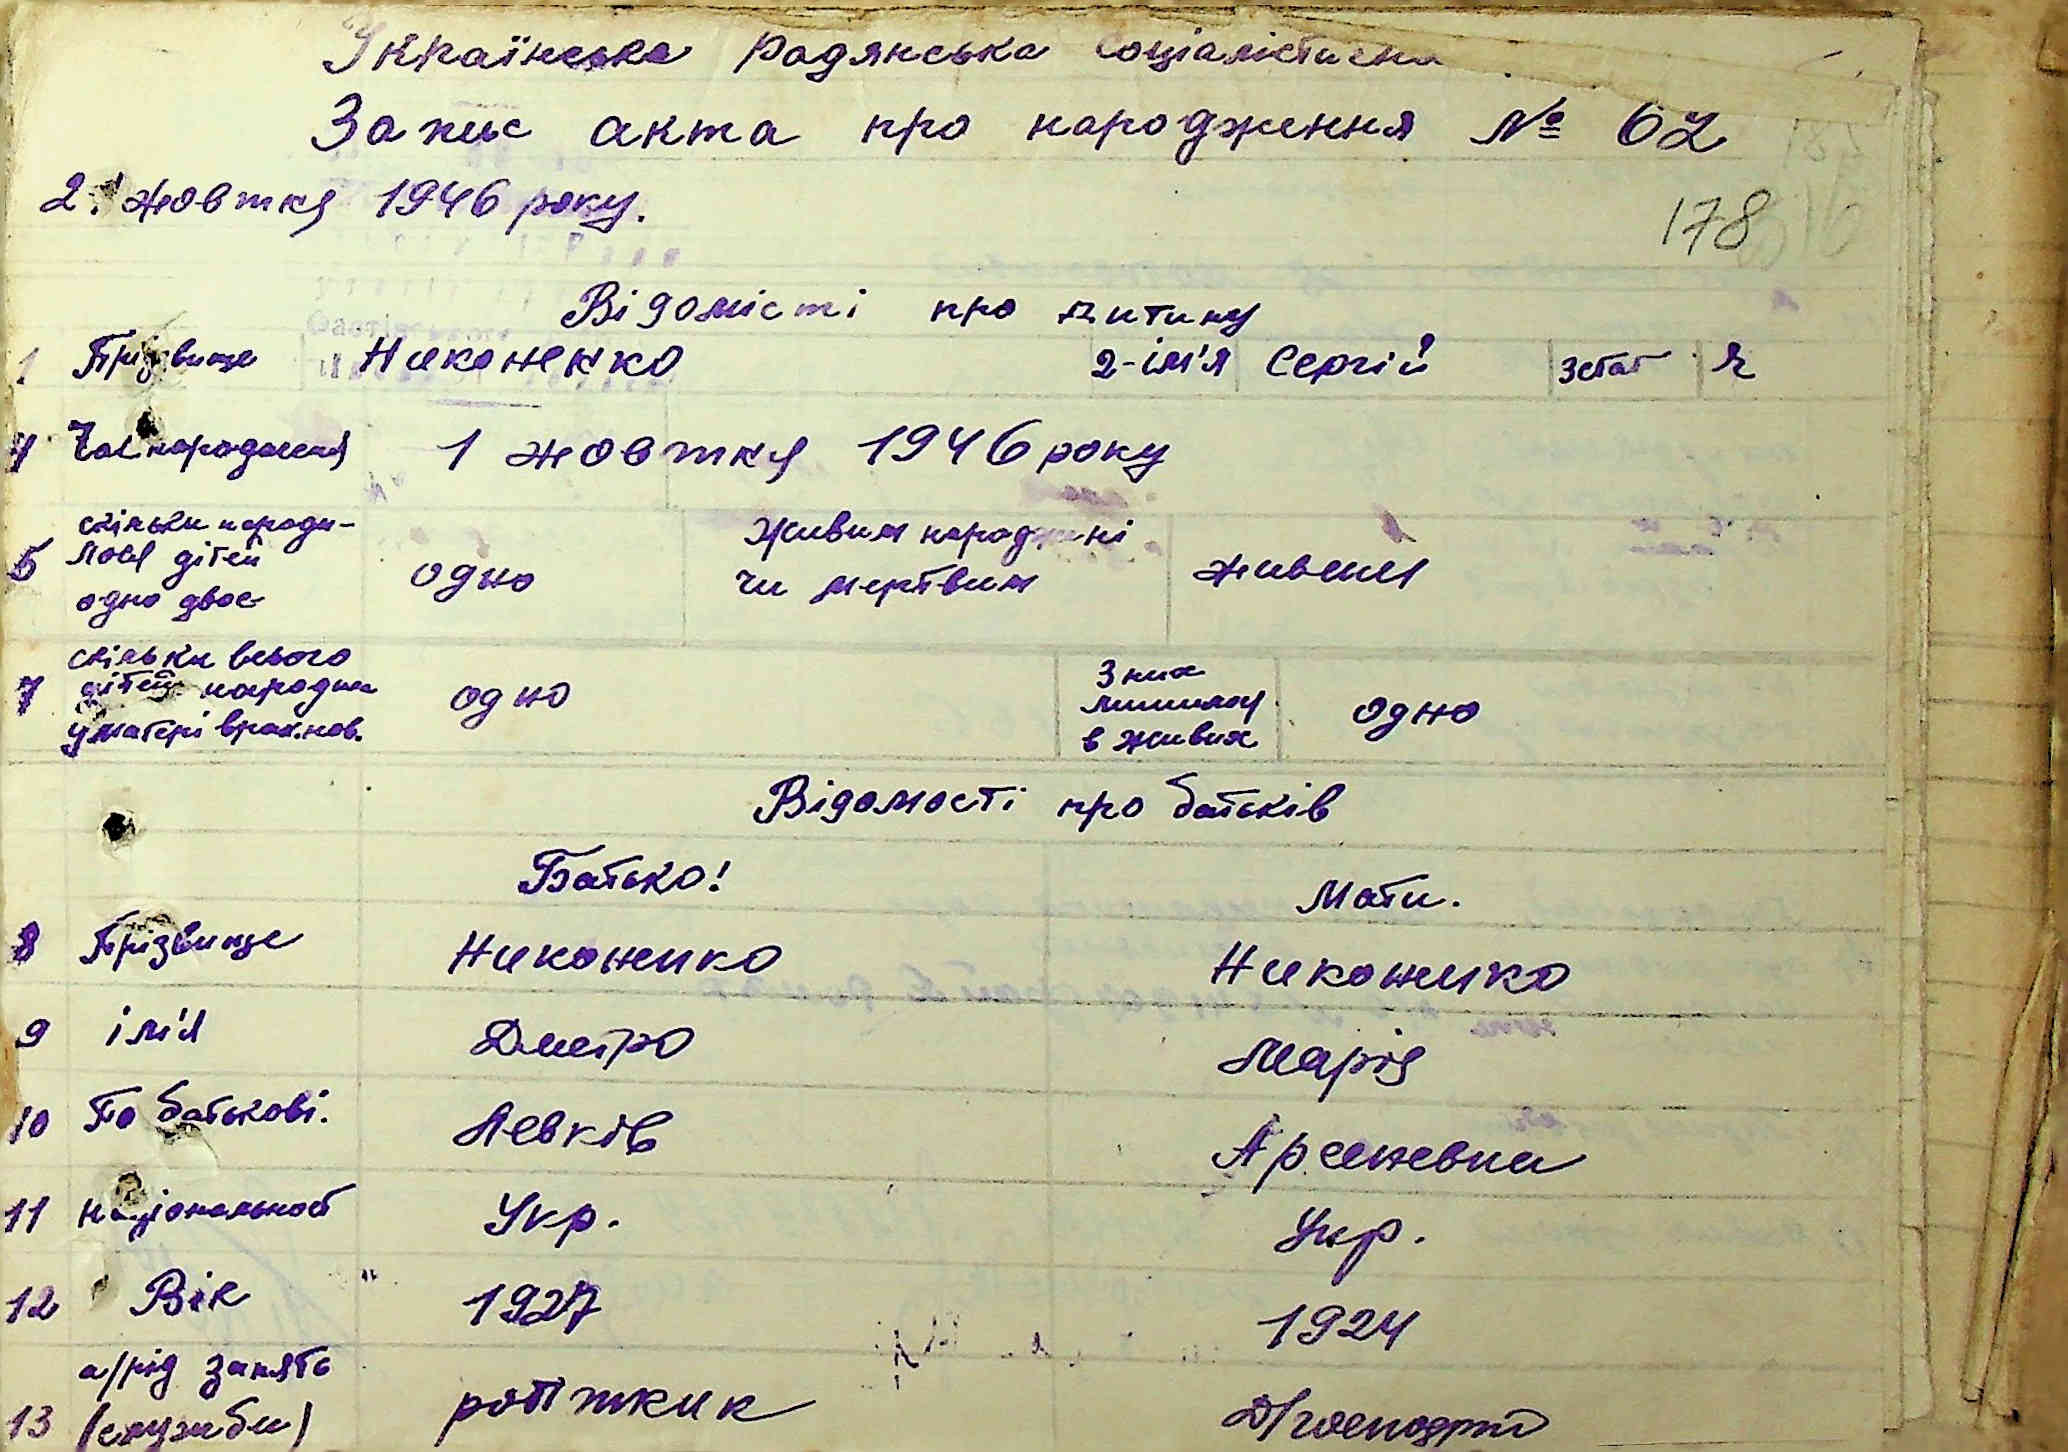 Українська Радянська Соціалістична
Запис акта про народження № 62
2. жовтня 1946 року.
178
Відомісті про дитину
1 Прізвище Никоненко 2-ім'я Сергій 3 стат ч
4 Час народження 1 жовтня 1946 року
5 скільки народи-
лося дітей
одно двоє одно Живим народжені
чи мертвим живим
7 скільки всього
дітей народил
у матері врах.нов. одно З них
лишилось
в живих одно
Відомості про батьків
Батько! Мати.
8 Прізвище Никоненко Никоненко
9 ім'я Дмитро Марія
10 По батькові. Левків Арсеневна
11 національност Укр. Укр.
12 Вік 1927 1924
13 а/рід занять
(служби) робітник Д/господрт